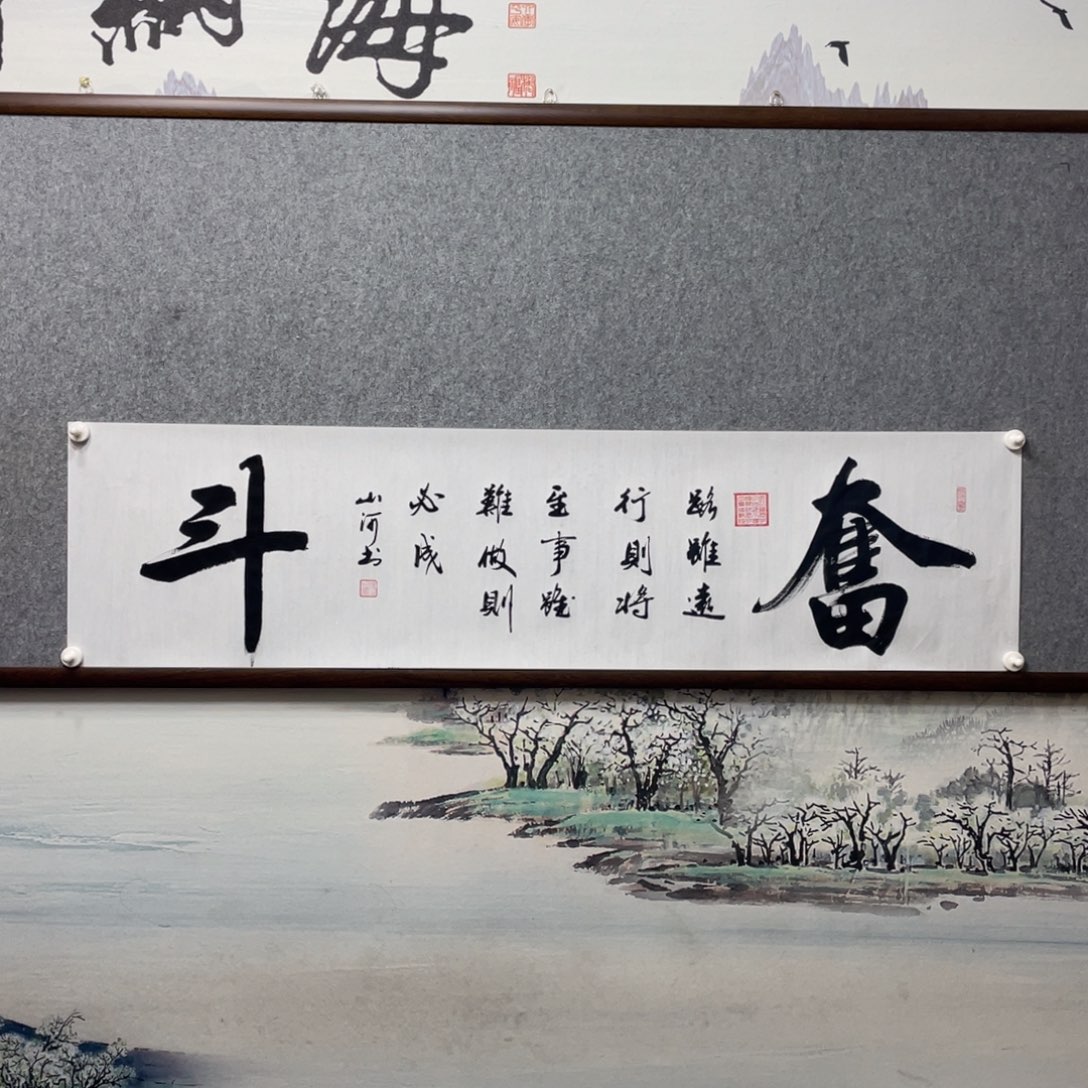 海納
奮
路雖遠
行則將
至事雖
難做則
必成
山河书
斗